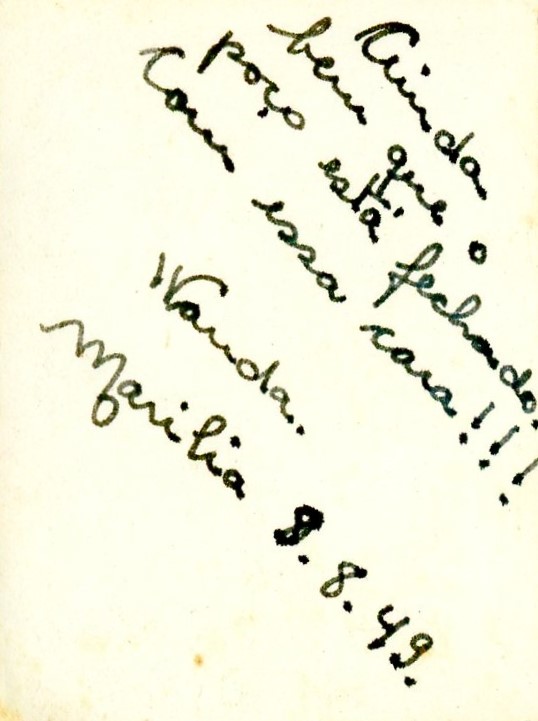 Ainda
bem que o
poço está fechado.
Com essa cara!!!
Wanda.
Marilia 8.8.49.